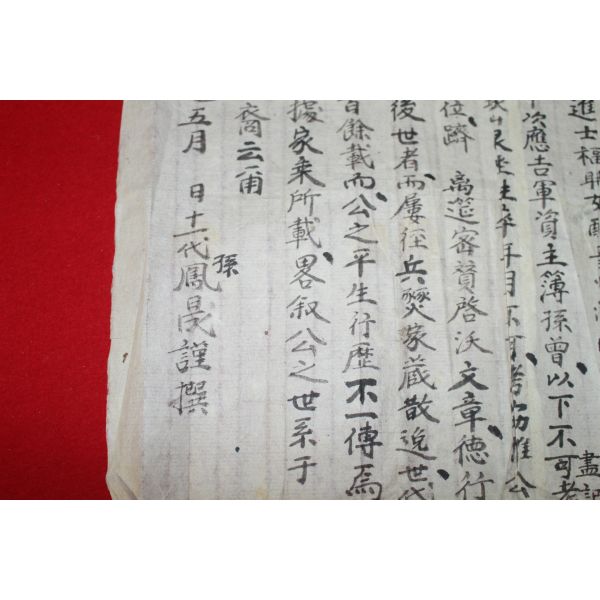 進士福
次應吉軍資主簿孫曾以下不可
年月不可考 惟公
位躋 离筵密贊啓沃文章德行
後世者而屢徑兵燹家藏散逸世代
百餘載而公之平生行歷不一傳焉
據家乘所載畧叙公之世系于
裔云爾
五月 日十一代孫鳳晟謹撰